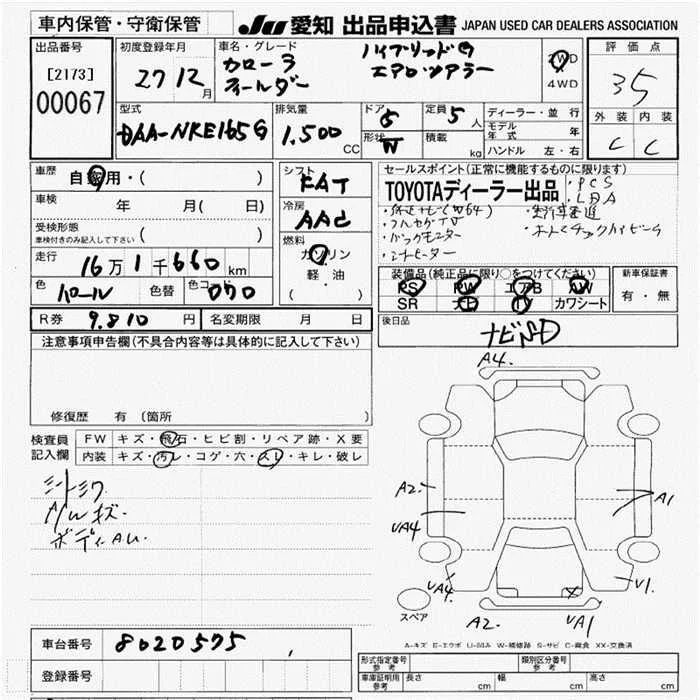 車内保管・守衛保管
JU 愛知 出品申込書 JAPAN USED CAR DEALERS ASSOCIATION
出品番号
[2173]
00067
初度登録年月
27 12 月
車名・グレード
カローラ
フィールダー
ハイブリッドG
エアロツアラー
2WD
4WD
評価点
3.5
外装 内装
C C
型式
DAA-NKE165G
排気量
1.500 CC
ドア 5
形状 W
定員 5 人
積載 kg
ディーラー・並行
モデル年式 年
ハンドル 左・右
車歴
自家用・( )
車検 年 月( 日)
受検形態
車検付きのみ記入して下さい ( )
走行
16万1千660km
色 パール 色替 色コード 070
シフト
FAT
冷房
AAC
燃料
ガソリン
軽・油
( )
セールスポイント(正常に機能するものに限ります)
TOYOTAディーラー出品
・PCS
・LDA
・純正ナビ(W64)
・フルセグTV
・バックモニター
・シートヒーター
・オートマチックハイビーム
装備品(純正品に限り○をつけてください)
PS PW エアB AW
SR ナビ TV カワシート
新車保証書
有・無
後日品
ナビSD
R券 9.810 円 名変期限 月 日
注意事項申告欄(不具合内容等は具体的に記入して下さい)
修復歴 有 〔箇所
検査員
記入欄
FW キズ・飛石・ヒビ割・リペア跡・X要
内装 キズ・汚レ・コゲ・穴・スレ・キレ・破レ
シートシワ
A/Wキズ・
ボディAU.
A4.
A2.
UA4
A1
UA4.
U1.
A2.
UA1
スペア
A-キズ E-エクボ U-凹み W-補修跡 S-サビ C-腐食 XX-交換済
車台番号 8020575
登録番号
形式指定番号
参考
類別区分番号
参考
車庫証明用
参考
長さ cm 幅 cm 高さ cm